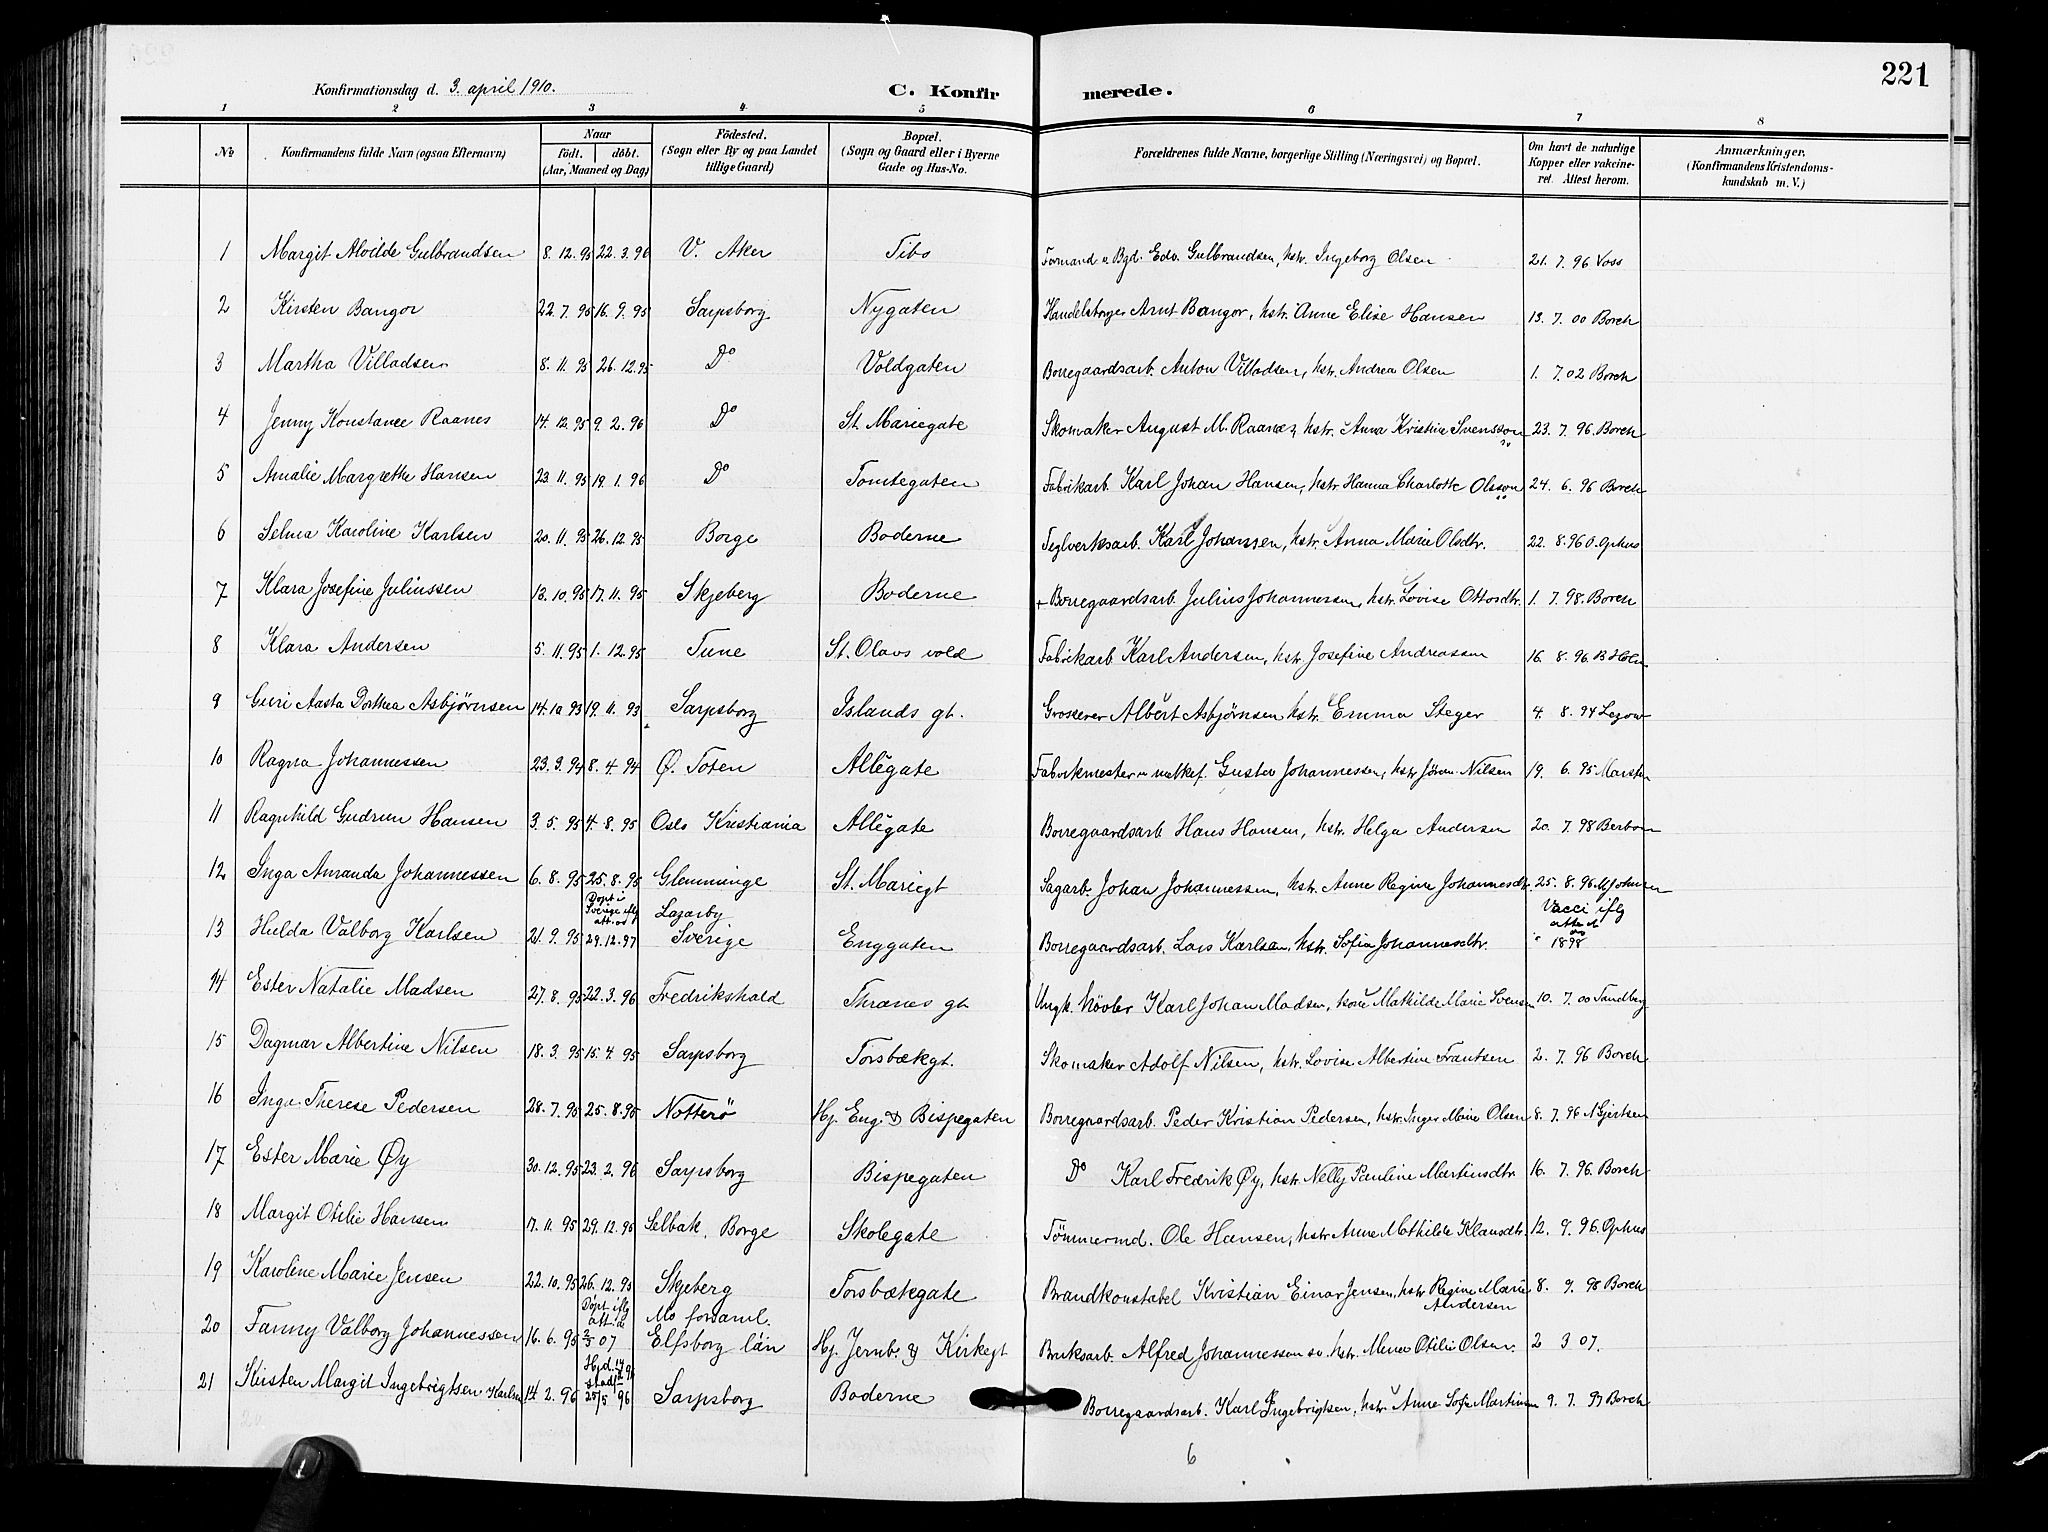 221
Konfirmationsdag d. 3. april 1910. C. Konfirmerede.
1 2 3 4 5 6 7 8
No Konfirmandens fulde Navn (ogsaa Efternavn) Naar født. døbt. (Aar, Maaned og Dag) Fødested. (Sogn eller By og paa Landet tillige Gaard) Bopæl. (Sogn og Gaard eller i Byerne Gade og Hus-No. Forældrenes fulde Navne, borgerlige Stilling (Næringsvei) og Bopæl. Om havt de naturlige Kopper eller vakcineret. Attest herom. Anmærkninger. (Konfirmandens Kristendomskundskab m. V.)
1 Margit Alvilde Gulbrandsen 8. 12. 95 22. 3. 96 V. Aker Tibo Formand v Bgd. Edv. Gulbrandsen, hstr. Ingeborg Olsen 21. 7. 96 Voss
2 Kirsten Bangor 22. 7. 95 16. 9. 95 Sarpsborg Nygaten Handelsborger Arnt Bangor, hstr. Anne Elise Hansen 13. 7. 00 Borch
3 Martha Villadsen 8. 11. 95 26. 12. 95 Do Voldgaten Borregaardsarb. Anton Villadsen, hstr. Andrea Olsen 1. 7. 02 Borch
4 Jenny Konstance Raanes 14. 12. 95 9. 2. 96 Do St. Mariegate Skomaker August M. Raanes, hstr. Anna Kristine Svensson 23. 7. 96. Borch
5 Amalie Margrethe Hansen 23. 11. 95 19. 1. 96 Do Tomtegaten Fabrikarb. Karl Johan Hansen, hstr. Hanna Charlotte Olsson 24. 6. 96 Borch
6 Selma Karoline Karlsen 20. 11. 95 26. 12. 95 Borge Boderne Teglverksarb. Karl Johansen, hstr. Anna Marie Olsdtr. 22. 8. 96 O. Ophus
7 Klara Josefine Juliussen 13. 10. 95 17. 11. 95 Skjeberg Boderne + Borregaardsarb. Julius Johannessen, hstr. Lovise Ottosdtr. 1. 7. 98. Borch
8 Klara Andersen 5. 11. 95 1. 12. 95 Tune St. Olavs vold Fabrikarb. Karl Andersen, hstr. Josefine Andreassen 16. 8. 96. B Holm
9 Guri Aasta Dorthea Asbjørnsen 14. 10 93 19. 11. 93 Sarpsborg Islands gt. Grosserer Albert Asbjørnsen, hstr. Emma Steger 4. 8. 94 Legow
10 Ragna Johannessen 23. 3. 94 8. 4. 94 Ø. Toten Allégate Fabrikmester Gustav Johannessen, hstr Jøran Nilsen 19. 6. 95
11 Ragnhild Gudrun Hansen 3. 5. 95 4. 8. 95 Oslo Kristiania Allégate Borregaardsarb Hans Hansen, hstr. Helga Andersen 20. 7. 98
12 Inga Amanda Johannessen 6. 8. 95 25. 8. 95 Glemminge St. Mariegt Sagarb. Johan Johannessen, hstr. Anne Regine Johannesdtr. 25. 8. 96 M Johnsen
13 Hulda Valborg Karlsen 21. 9. 95 Døpt i Sverige iflg att. av 29. 12. 97 Lazarby Sverige Enggaten Borregaardsarb. Lars Karlsen, hstr. Sofia Johannesdtr. Vacci iflg 1898
14 Ester Natalie Madsen 27. 8. 95 22. 3. 96 Fredrikshald Thranes gt Ungk. høvler Karl Johan Madsen, Mathilde Marie Svensen 10. 7. 00 Sandberg
15 Dagmar Albertine Nilsen 18. 3. 95 15. 4. 95 Sarpsborg Torsbækgt. Skomaker Adolf Nilsen, hstr. Lovise Albertine Frantsen 2. 7. 96 Borch
16 Inga Therese Pedersen 28. 7. 95 25. 8. 95 Nøtterö Hj. Eng. & Bispegaten Borregaardsarb. Peder Kristian Pedersen, hstr. Inger Marie Olsen 8. 7. 96 N Gjertsen
17 Ester Marie Øy 30. 12. 95 23. 2. 96 Sarpsborg Bispegaten Do Karl Fredrik Øy, hstr. Nelly Pauline Martinsdtr. 16. 7. 96. Borch
18 Margit Otilie Hansen 17. 11. 95 29. 12. 95 Selbak, Borge Skolegate Tömmermd. Ole Hansen, hstr Anne Mathilde Klausdtr. 12. 9. 96. Ophus
19 Karoline Marie Jensen 22. 10. 95 26. 12. 95 Skjeberg Torsbækgate Brandkonstabel Kristian Einar Jensen, hstr Regine Marie Andersen 8. 9. 98 Borch
20 Fanny Valborg Johannessen 16. 6. 95 Døpt iflg 2/5 07 Mo forsaml. Elfsborg län Hj. Jernb. & Kirkegt Bruksarb. Alfred Johannessen hstr. Mina Otilie Olsen. 2 3 07.
21 Kirsten Margit Ingebrigtsen Karlsen 14. 2. 96 Hjd. stadf. 25/5 96 Sarpsborg Boderne Borregaardsarb. Karl Ingebrigtsen, hstr Anne Sofie Martinsen 9. 7. 97 Borch
6